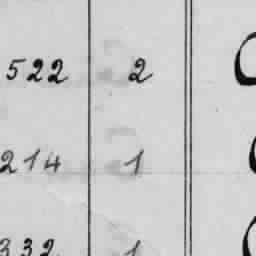 522 2
214 1
332 1